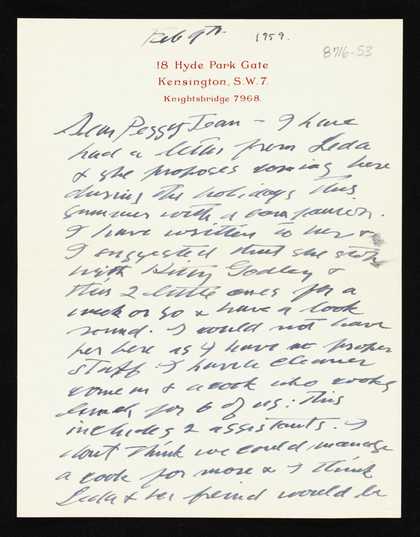 Feb 9th. 1959.
8716-53
18 Hyde Park Gate
Kensington, S.W.7.
Knightsbridge 7968.
Dear Peggy Jean – I have
had a letter from Leda
& she proposes coming here
during the holidays this
summer with a companion.
I have written to her &
I suggested that she stay
with Kitty Godley &
their 2 little ones for a
week or so & have a look
round. I would not have
her here as I have no proper
staff. I have cleaner
women & a cook who cooks
lunch for 6 of us: this
includes 2 assistants. I
dont think we could manage
a cook for more & I think
Leda & her freind would be